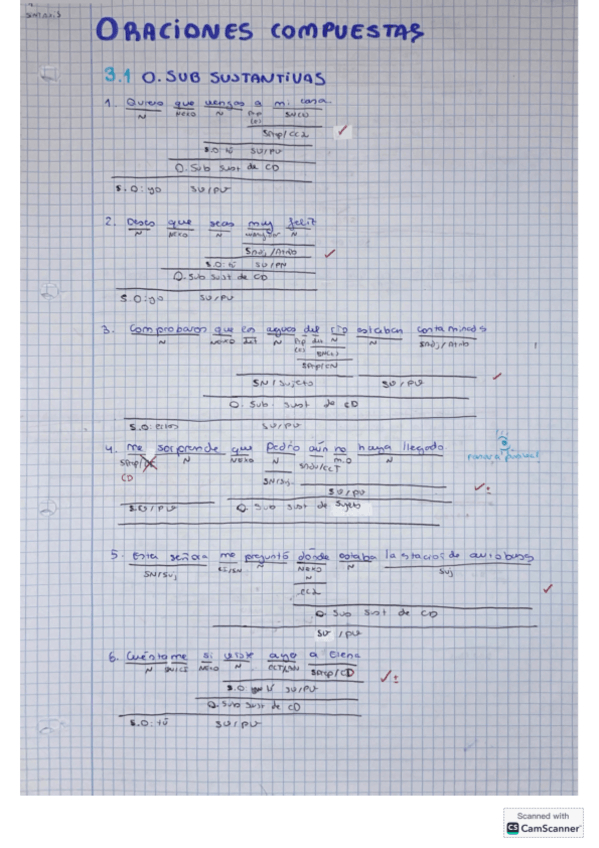 SINTAXIS
ORACIONES COMPUESTAS
3.1 O. SUB SUSTANTIVAS
1. Quiero que vengas a mi casa
N NEXO N Prep SN(t)
(e)
SPrep/CCL
S.O: tú SV/PV
O. Sub Sust de CD
S.O: yo SV/PV
2. Deseo que seas muy feliz
N NEXO N N
SAdj/Atrib
S.O: tú SV/PN
O. Sub Sust de CD
S.O: yo SV/PV
3. Comprobaron que las aguas del río estaban contaminadas
N NEXO Det N Prep det N N SAdj/Atrib
(e) SN(t)
SPrep/CN
SN/Sujeto SV/PV
O. Sub. Sust de CD
S.O: ellos SV/PV
4. Me sorprende que Pedro aún no haya llegado
N NEXO N SAdv/CCT m.o N
CD SN/Suj.
SV/PV
SV/PV O. Sub Sust de Sujeto
5. Esta señora me preguntó dónde estaba la estación de autobuses
SN/Suj CI/SN N NEXO N Suj
N
CCL
O. Sub Sust de CD
SV/PV
6. Cuéntame si viste ayer a Elena
N SN/CI NEXO N CCT/SN SPrep/CD
S.O: tú SV/PV
O. Sub Sust de CD
S.O: tú SV/PV
Scanned with
CS CamScanner